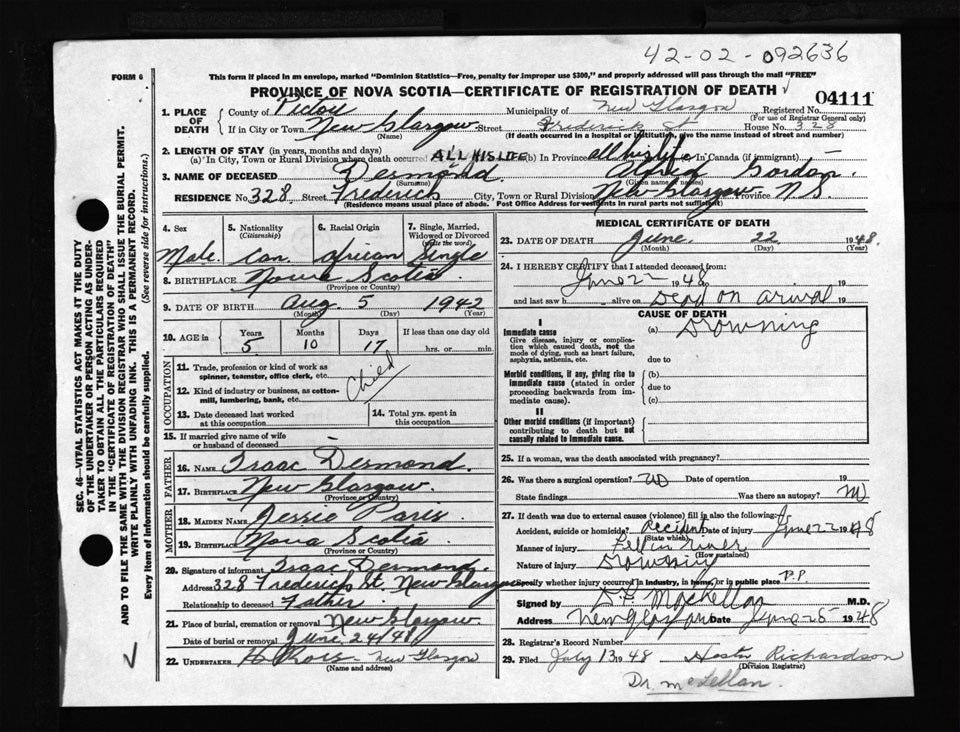 42-02-092636
FORM 6
This form if placed in an envelope, marked "Dominion Statistics—Free, penalty for improper use $300," and properly addressed will pass through the mail "FREE"
PROVINCE OF NOVA SCOTIA—CERTIFICATE OF REGISTRATION OF DEATH
04111
1. PLACE OF DEATH
County of Pictou Municipality of New Glasgow Registered No.
(For use of Registrar General only)
If in City or Town New Glasgow Street Frederick St House No. 328
(Name) (If death occurred in a hospital or institution, give the name instead of street and number)
2. LENGTH OF STAY (in years, months and days)
(a) In City, Town or Rural Division where death occurred ALL HIS LIFE (b) In Province all his life In Canada (if immigrant)
3. NAME OF DECEASED Desmond Gordon
(Surname) (Given name or names)
RESIDENCE No. 328 Street Frederick City, Town or Rural Division New Glasgow Province N.S.
(Residence means usual place of abode. Post Office Address for residents in rural parts not sufficient)
4. Sex
Male
5. Nationality
(Citizenship)
Can.
6. Racial Origin
African
7. Single, Married, Widowed or Divorced
(write the word)
Single
8. BIRTHPLACE Nova Scotia
(Province or Country)
9. DATE OF BIRTH Aug 5 1942
(Month) (Day) (Year)
10. AGE in
Years Months Days If less than one day old
5 10 17 hrs. or min.
OCCUPATION
11. Trade, profession or kind of work as spinner, teamster, office clerk, etc.
12. Kind of industry or business, as cotton-mill, lumbering, bank, etc.
Child
13. Date deceased last worked at this occupation
14. Total yrs. spent in this occupation
15. If married give name of wife or husband of deceased —
FATHER
16. NAME Isaac Desmond.
17. BIRTHPLACE New Glasgow.
(Province or Country)
MOTHER
18. MAIDEN NAME Jessie Paris
19. BIRTHPLACE Nova Scotia
(Province or Country)
20. Signature of informant Isaac Desmond.
Address 328 Frederick St. New Glasgow
Relationship to deceased Father
21. Place of burial, cremation or removal New Glasgow.
Date of burial or removal June 24/48
22. UNDERTAKER New Glasgow
(Name and address)
MEDICAL CERTIFICATE OF DEATH
23. DATE OF DEATH June 22 1948.
(Month) (Day) (Year)
24. I HEREBY CERTIFY that I attended deceased from:
June 22 1948 19
and last saw h alive on Dead on arival 19
CAUSE OF DEATH
I
Immediate cause
Give disease, injury or complication which caused death, not the mode of dying, such as heart failure, asphyxia, asthenia, etc.
(a) Drowning
due to
Morbid conditions, if any, giving rise to immediate cause (stated in order proceeding backwards from immediate cause).
(b)
due to
(c)
II
Other morbid conditions (if important) contributing to death but not causally related to immediate cause.
25. If a woman, was the death associated with pregnancy?
26. Was there a surgical operation? Date of operation 19
State findings Was there an autopsy?
27. If death was due to external causes (violence) fill in also the following:
Accident, suicide or homicide? accident Date of injury June 22 1948
(State which)
Manner of injury Fell in river
(How sustained)
Nature of injury Drowning
Specify whether injury occurred in industry, in home, or in public place P.P.
Signed by M.D.
Address New Glasgow Date June 25 1948
28. Registrar's Record Number
29. Filed July 13 1948 Richardson
(Division Registrar)
Dr. McLellan.
SEC. 46—VITAL STATISTICS ACT MAKES IT THE DUTY
OF THE UNDERTAKER OR PERSON ACTING AS UNDER-
TAKER TO OBTAIN ALL THE PARTICULARS REQUIRED
IN THE "CERTIFICATE OF REGISTRATION OF DEATH"
AND TO FILE THE SAME WITH THE DIVISION REGISTRAR WHO SHALL ISSUE THE BURIAL PERMIT.
WRITE PLAINLY WITH UNFADING INK. THIS IS A PERMANENT RECORD.
Every item of information should be carefully supplied. (See reverse side for instructions.)